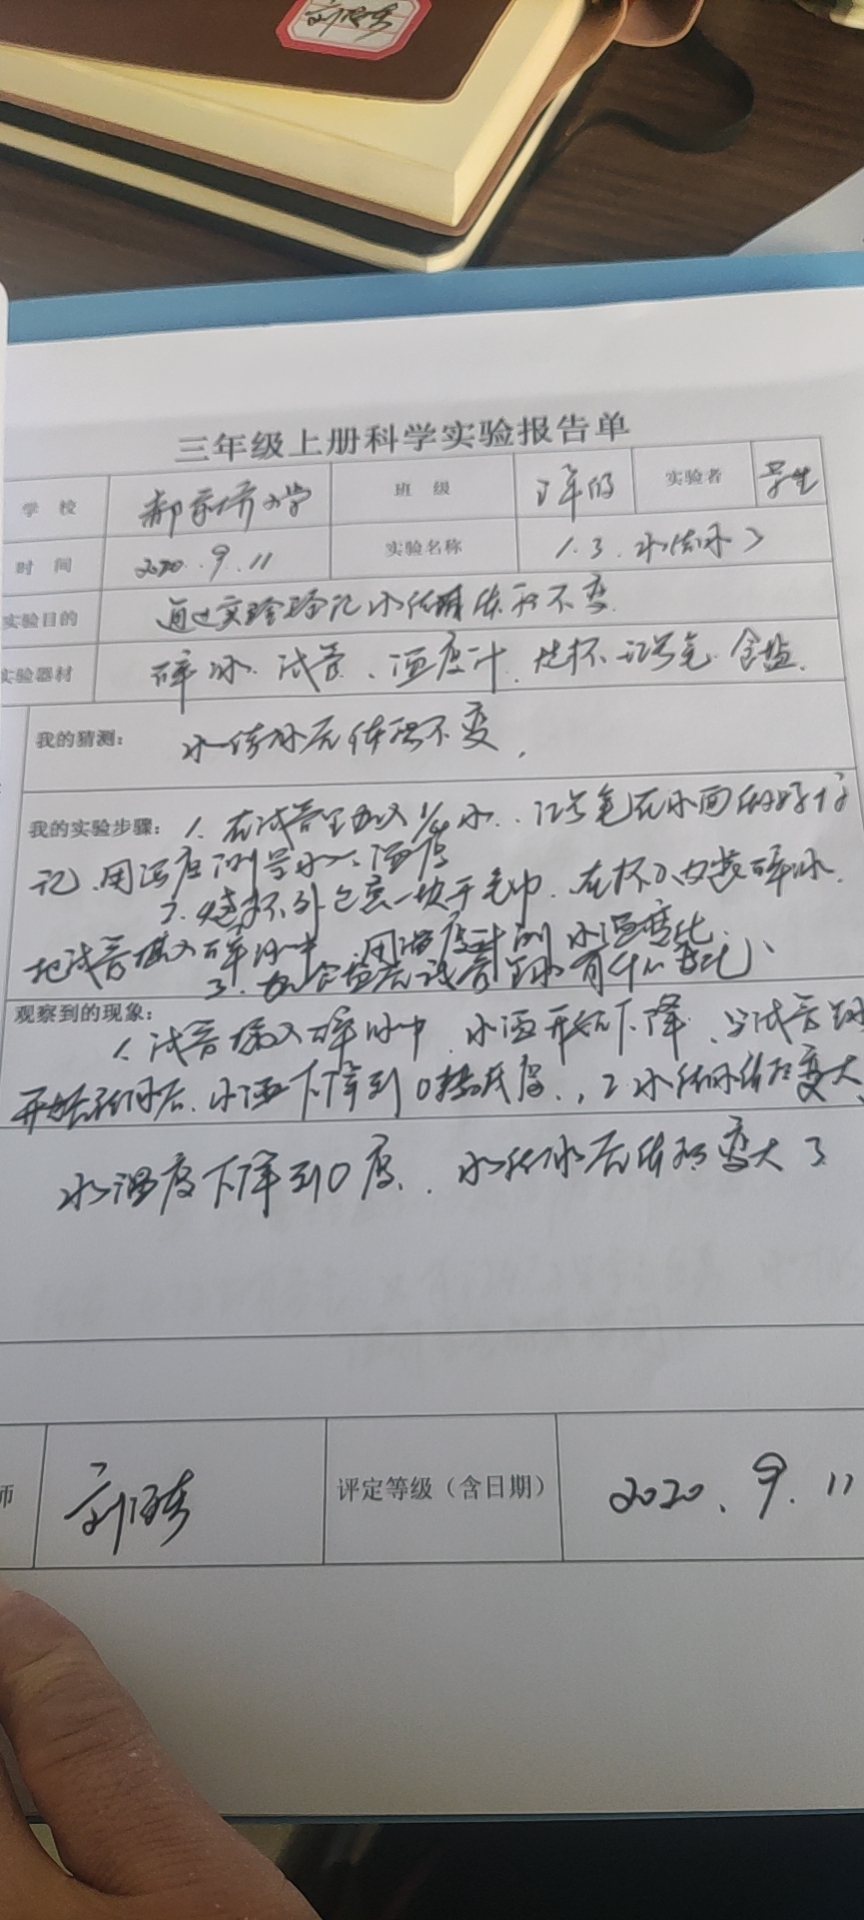 三年级上册科学实验报告单
学 校 郝家桥小学 班 级 三年级 实验者 学生
时 间 2020.9.11 实验名称 1.3.水结冰了
实验目的 通过实验验记水结冰体积不变.
实验器材 碎冰.试管、温度计.烧杯.记号笔.食盐.
我的猜测: 水结冰后体积不变.
我的实验步骤: 1.在试管里加入1/4水..记号笔在水面
记.用温度测量水温度
2.烧杯外包裹一块干毛巾.在杯内装碎冰.
把试管插入碎冰中.用温度计测水温变化.
3.加食盐后试管里水有什么变化、
观察到的现象:
1.试管插入碎冰中.水温开始下降.当试管里
开始结冰后.水温下降到0摄氏度..2水结冰体积变大.
水温度下降到0度..水结冰后体积变大了
师 评定等级(含日期) 2020.9.11